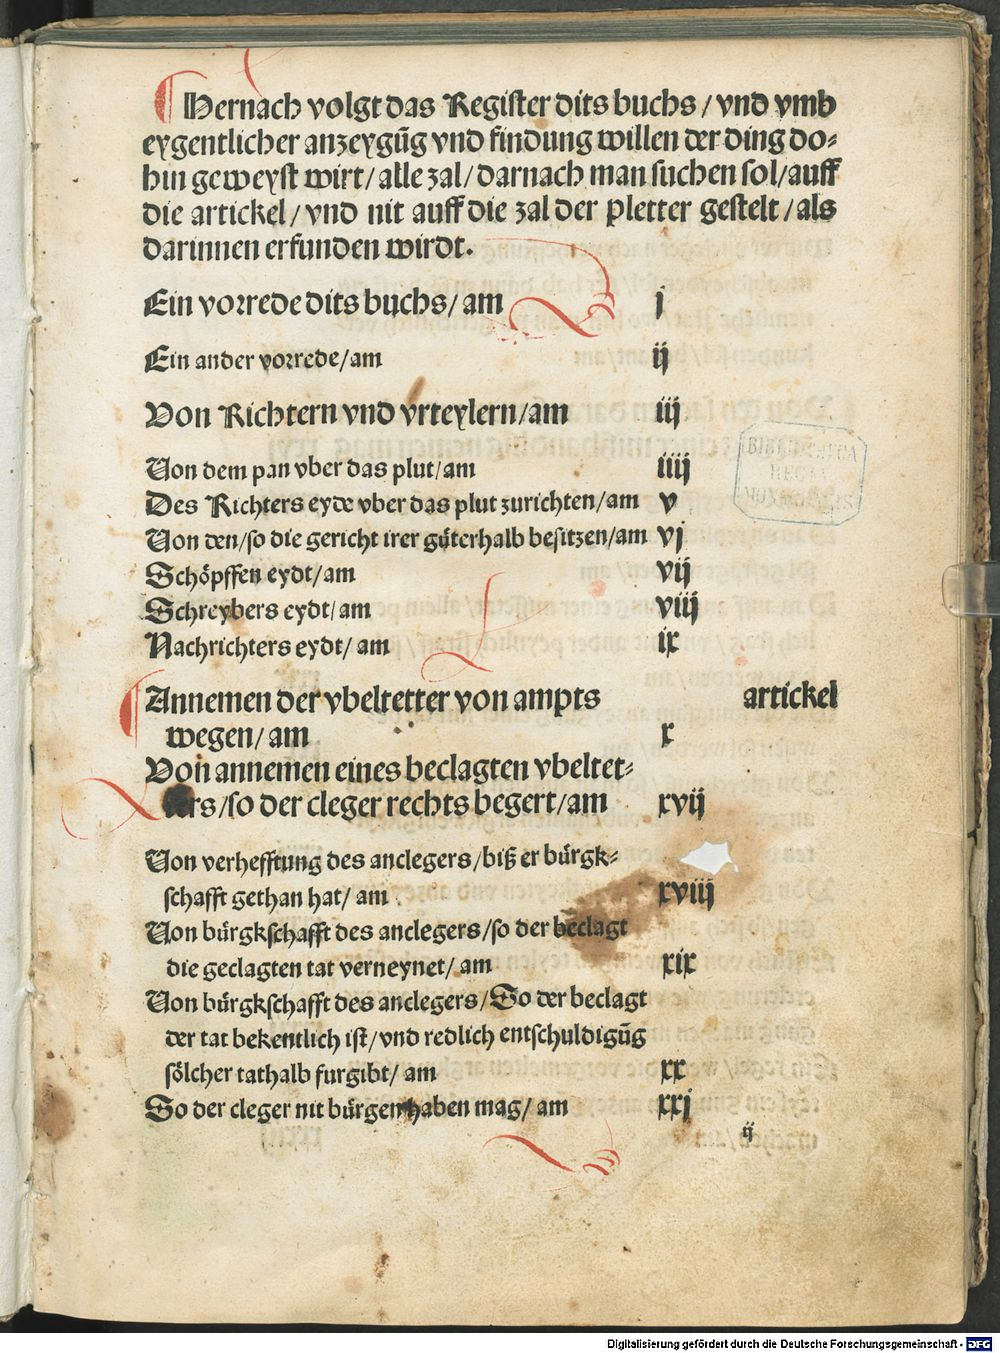 Hernach volgt das Register dits buchs / vnd vmb
eygentlicher anzeygūg vnd findung willen der ding do⸗
hin geweyst wirt / alle zal / darnach man suchen sol / auff
die artickel / vnd nit auff die zal der pletter gestelt / als
darinnen erfunden wirdt.
Ein vorrede dits buchs / am j
Ein ander vorrede / am ij
Von Richtern vnd vrteylern / am iij
Von dem pan vber das plut / am iiij
Des Richters eyde vber das plut zurichten / am v
Von den / so die gericht irer güterhalb besitzen / am vj
Schöpffen eydt / am vij
Schreybers eydt / am viij
Nachrichters eydt / am ix
Annemen der vbeltetter von ampts artickel
wegen / am x
Von annemen eines beclagten vbeltet⸗
ters / so der cleger rechts begert / am xvij
Von verhefftung des anclegers / biß er bürgk⸗
schafft gethan hat / am xviij
Von bürgkschafft des anclegers / so der beclagt
die geclagten tat verneynet / am xix
Von bürgkschafft des anclegers / So der beclagt
der tat bekentlich ist / vnd redlich entschuldigūg
sölcher tathalb furgibt / am xx
So der cleger nit bürgen haben mag / am xxj
ij
BIBLIOTHECA
REGIA
MONACENSIS
Digitalisierung gefördert durch die Deutsche Forschungsgemeinschaft - DFG